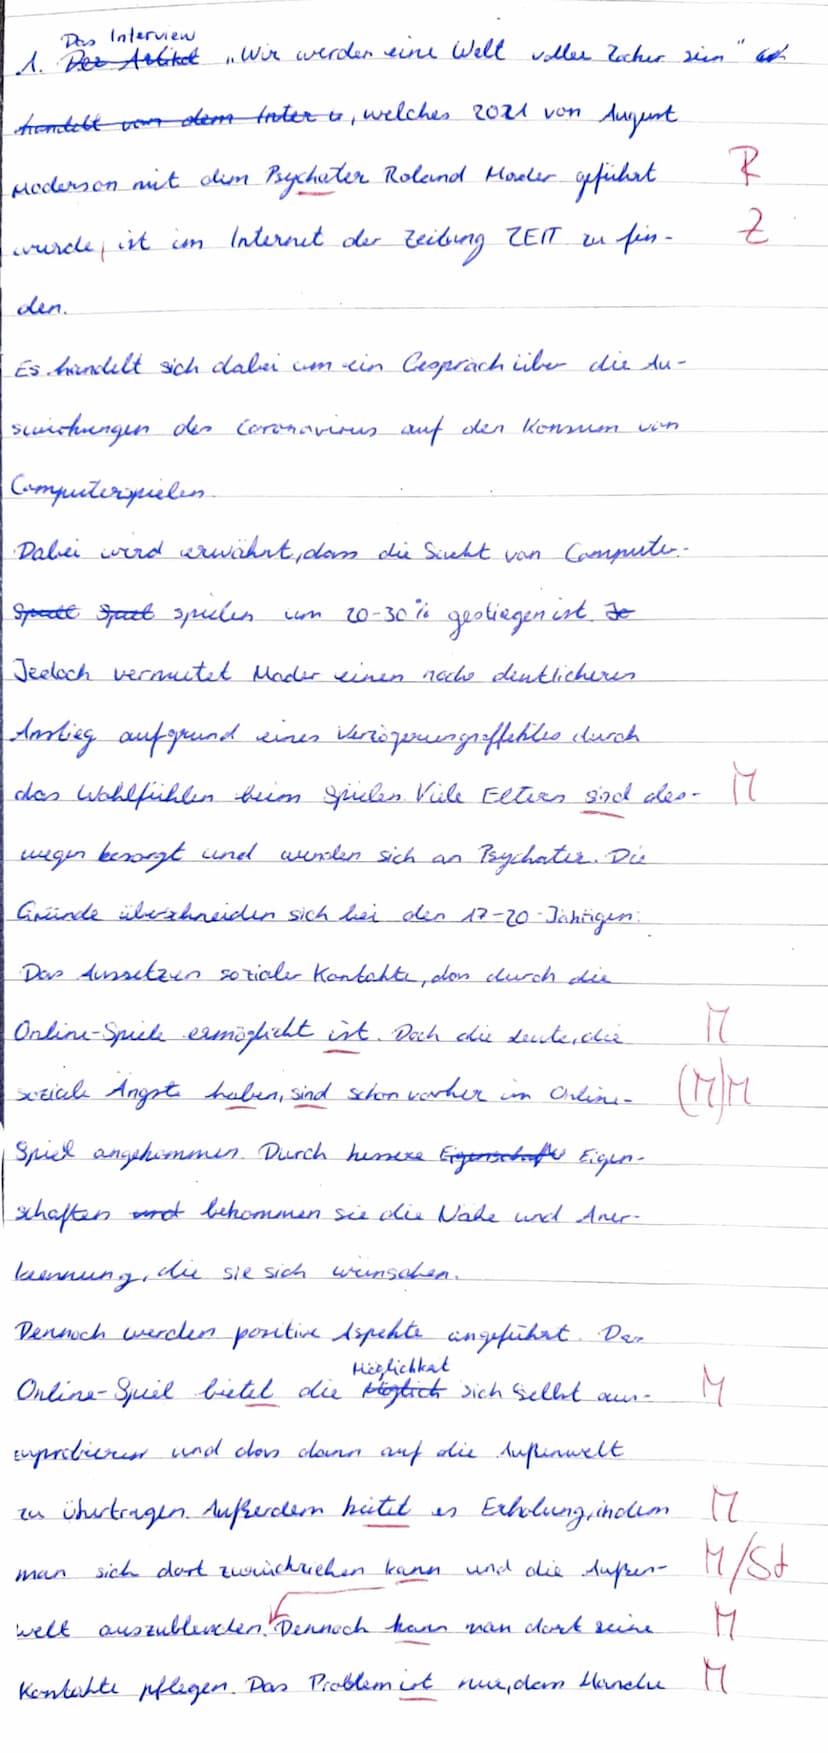 Das Interview
1. Der Artikel „Wir werden eine Welt voller Zocker sein"
handelt von dem Inter, welches 2021 von August
Moderson mit dem Psychater Roland Mader geführt R
wurde, ist im Internet der Zeitung ZEIT zu fin- Z
den.
Es handelt sich dabei um ein Gespräch über die Au-
swirkungen des Coronavirus auf den Konsum von
Computerspielen.
Dabei wird erwähnt, dass die Sucht von Computer-
spielen um 20-30% gestiegen ist. Je
Jedoch vermutet Mader einen noch deutlicheren
Anstieg aufgrund eines Verzögerungseffektes durch
das Wohlfühlen beim Spielen. Viele Eltern sind des- M
wegen besorgt und wenden sich an Psychater. Die
Gründe überschneiden sich bei den 17-20-Jährigen:
Das Aussetzen sozialer Kontakte, das durch die
Online-Spiele ermöglicht ist. Doch die Leute, die M
soziale Ängste haben, sind schon vorher im Online- (M)M
Spiel angekommen. Durch bessere Eigenschafte Eigen-
schaften und bekommen sie die Nähe und Aner-
kennung, die sie sich wünschen.
Dennoch werden positive Aspekte angeführt. Das
Möglichkeit
Online-Spiel bietet die Möglich sich selbst aus- M
zuprobieren und das dann auf die Außenwelt
zu übertragen. Außerdem bietet es Erholung, indem M
man sich dort zurückziehen kann und die Außen- M/St
welt auszublenden. Dennoch kann man dort seine M
Kontakte pflegen. Das Problem ist nur, dass Manche M